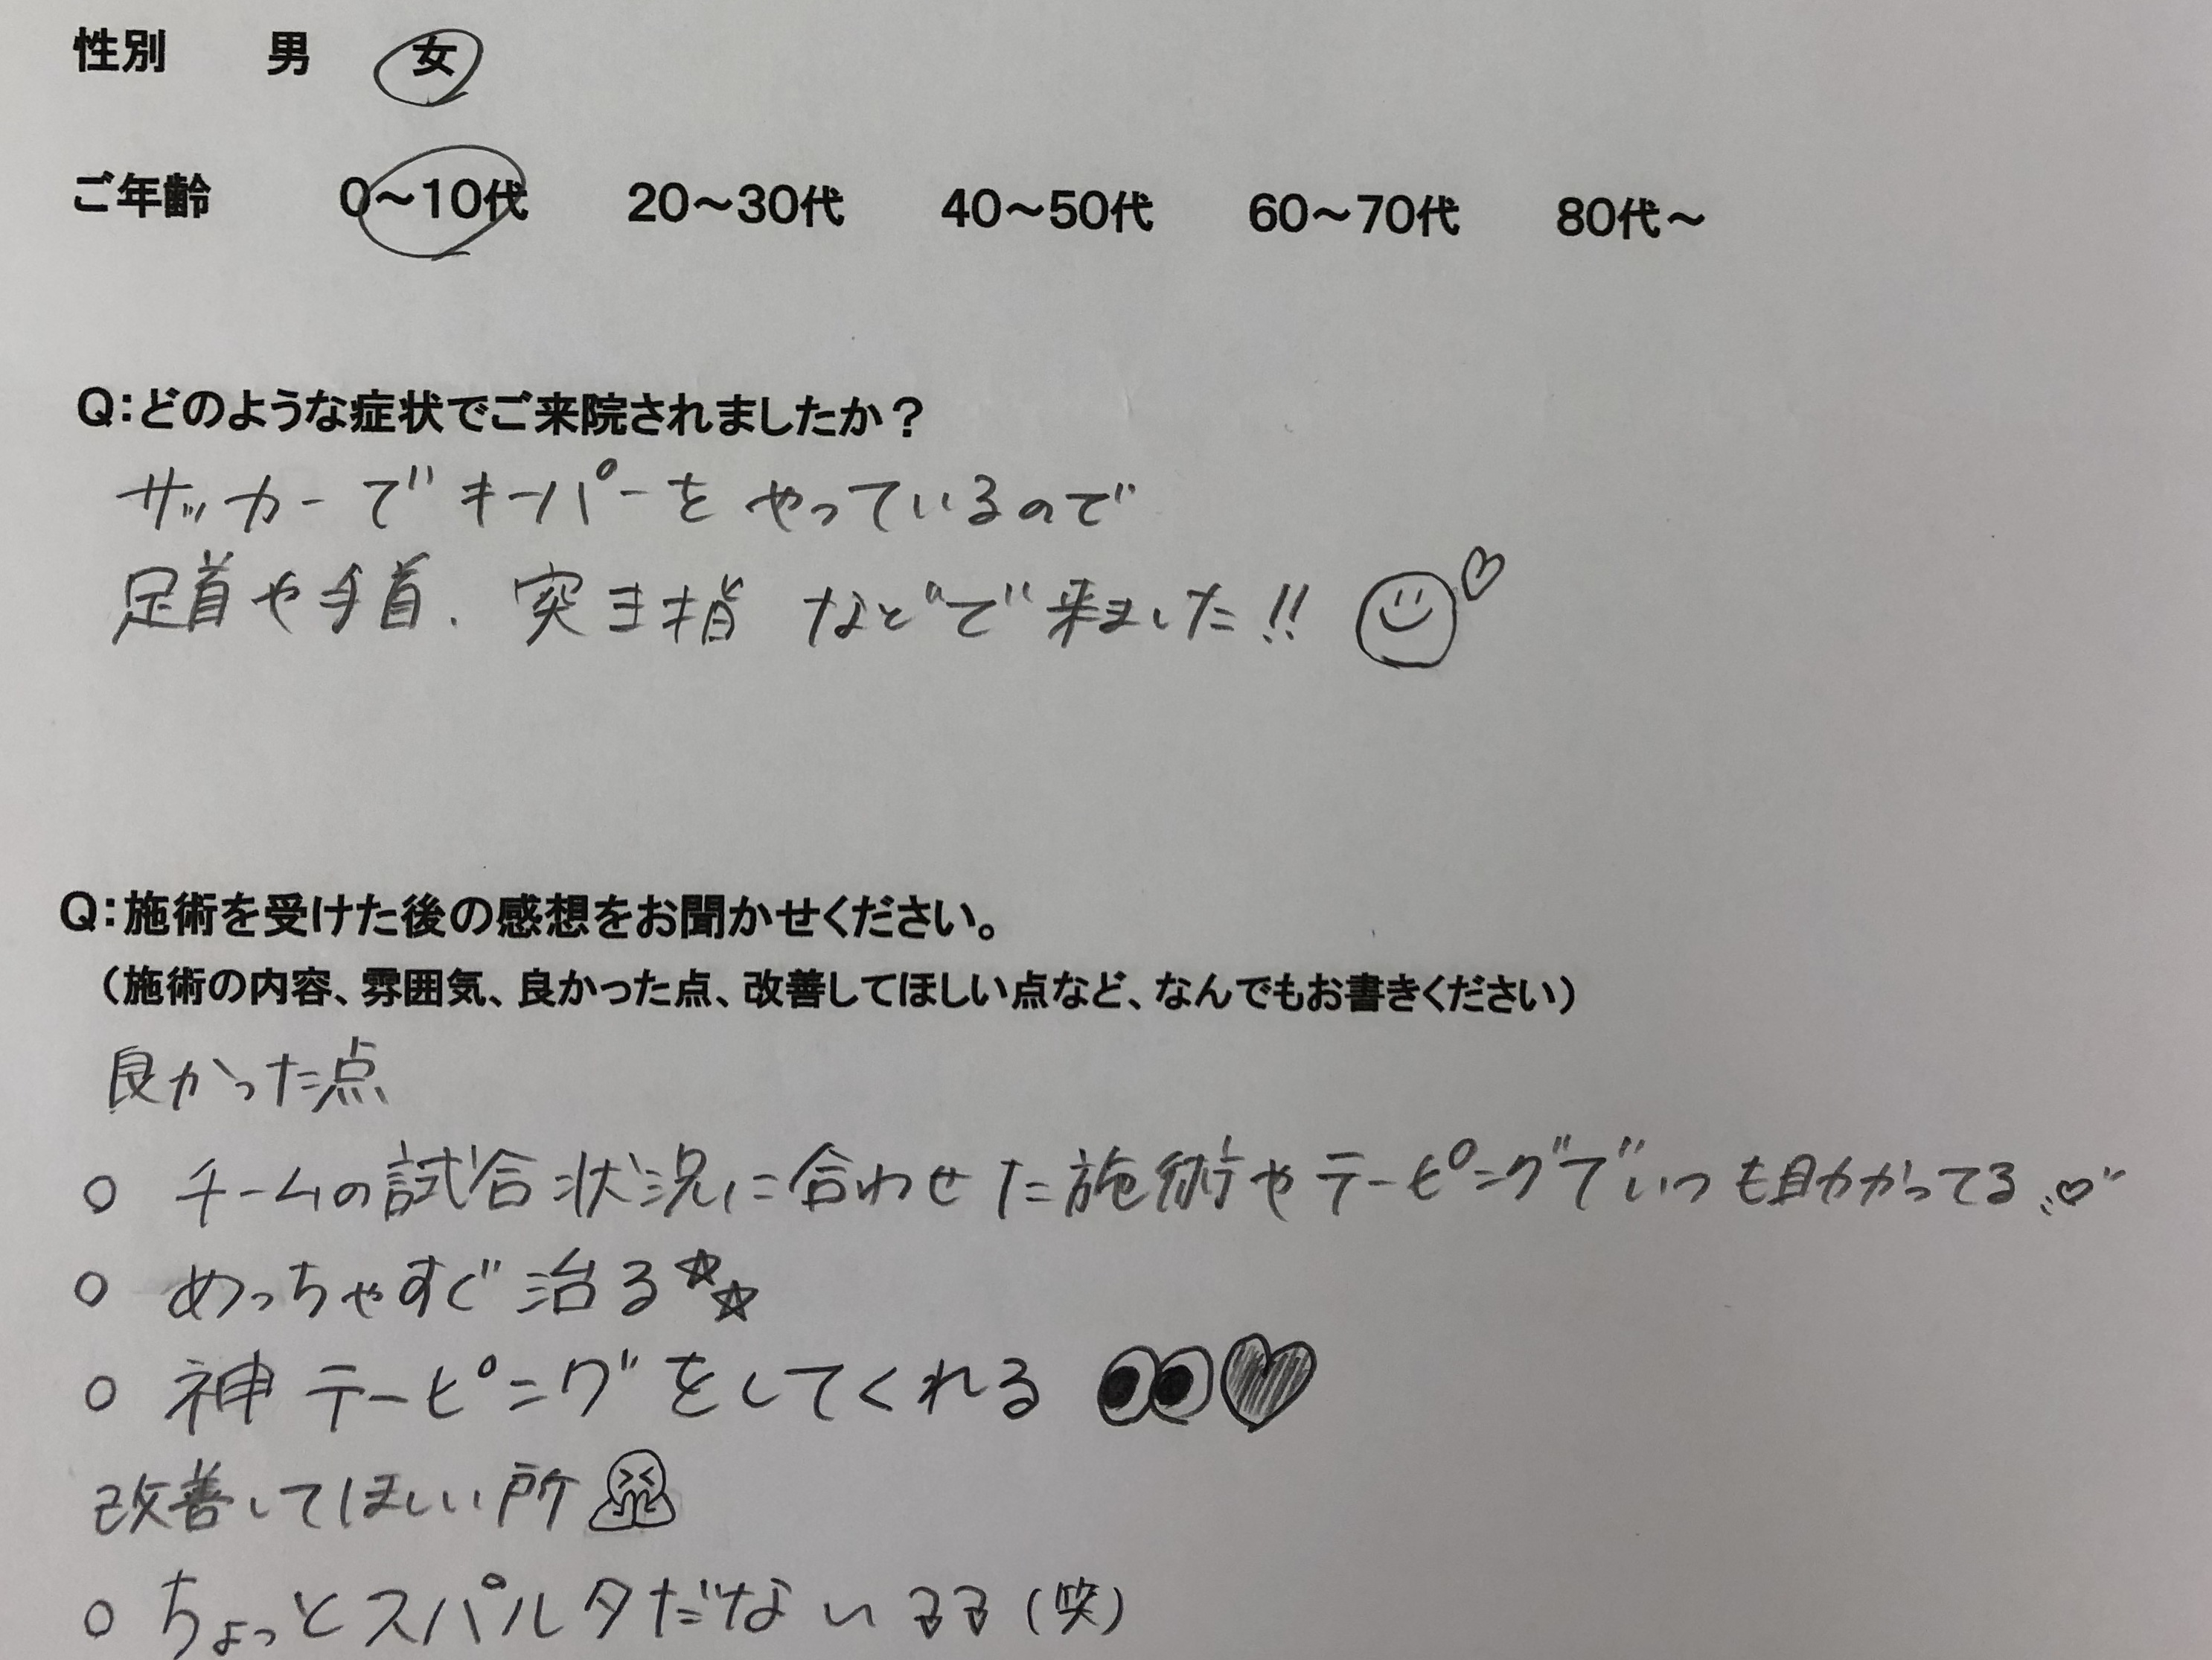 性別 男 女
ご年齢 0～10代 20～30代 40～50代 60～70代 80代～
Q:どのような症状でご来院されましたか？
サッカーでキーパーをやっているので
足首や手首、突き指などで来ました!!
Q:施術を受けた後の感想をお聞かせください。
（施術の内容、雰囲気、良かった点、改善してほしい点など、なんでもお書きください）
良かった点
○ チームの試合状況に合わせた施術やテーピングでいつも助かってる
○ めっちゃすぐ治る☆☆
○ 神テーピングをしてくれる
改善してほしい所
○ ちょっとスパルタだない (笑)